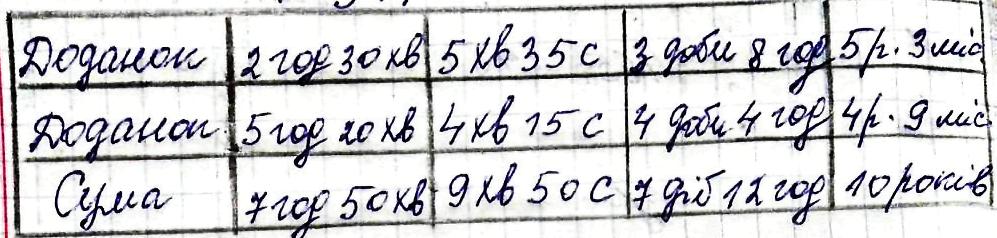 Доданок 2 год 30 хв 5 хв 35 с 3 доби 8 год 5 р. 3 міс
Доданок 5 год 20 хв 4 хв 15 с 4 доби 4 год 4 р. 9 міс
Сума 7 год 50 хв 9 хв 50 с 7 діб 12 год 10 років